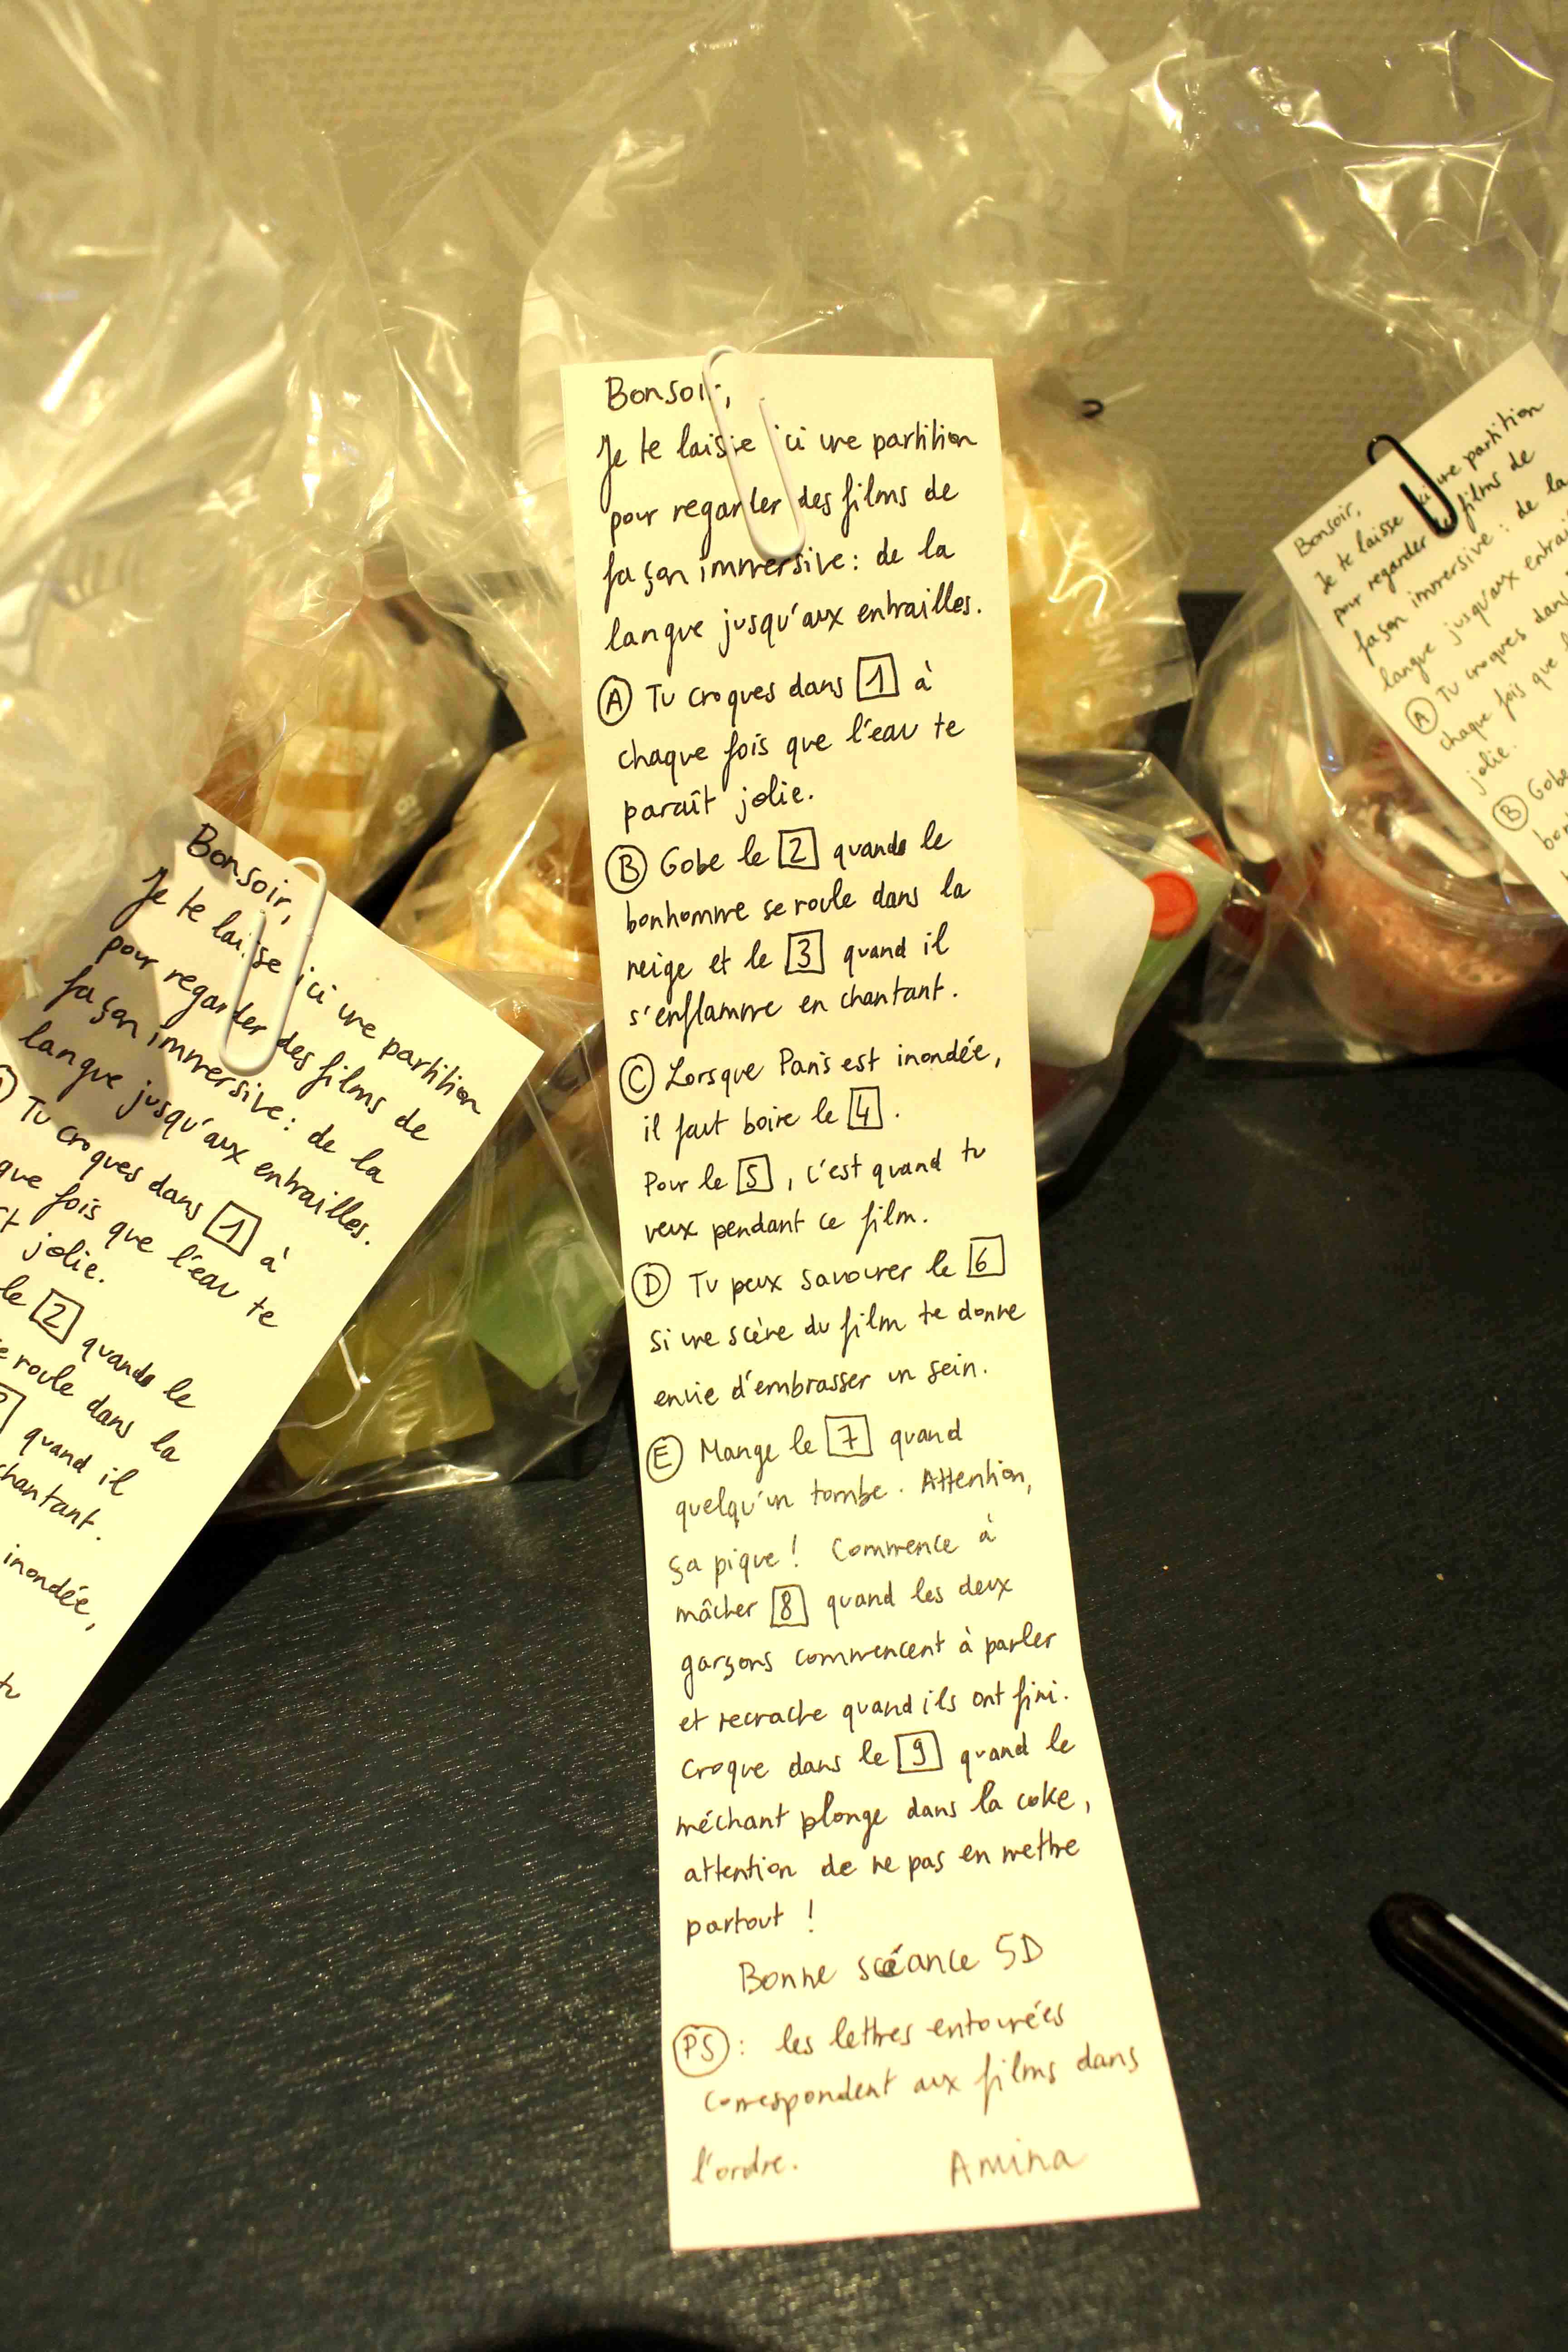 Bonsoir,
Je te laisse ici une partition
pour regarder des films de
façon immersive : de la
langue jusqu'aux entrailles.
Ⓐ Tu croques dans 1 à
chaque fois que l'eau te
paraît jolie.
Ⓑ Gobe le 2 quands le
bonhomme se roule dans la
neige et le 3 quand il
s'enflamme en chantant.
Ⓒ Lorsque Paris est inondée,
il faut boire le 4.
Pour le 5, c'est quand tu
veux pendant ce film.
Ⓓ Tu peux savourer le 6
si une scène du film te donne
envie d'embrasser un sein.
Ⓔ Mange le 7 quand
quelqu'un tombe. Attention,
ça pique ! Commence à
mâcher 8 quand les deux
garçons commencent à parler
et recrache quand ils ont fini.
Croque dans le 9 quand le
méchant plonge dans la coke,
attention de ne pas en mettre
partout !
Bonne scéance 5D
PS : les lettres entourées
correspondent aux films dans
l'ordre. Amina
Bonsoir,
Je te laisse ici une partition
pour regarder des films de
façon immersive : de la
langue jusqu'aux entrailles.
Tu croques dans 1 à
que fois que l'eau te
jolie.
le 2 quands le
roule dans la
quand il
chantant.
inondée,
tu
Bonsoir,
Je te laisse ici une partition
pour regarder films de
façon immersive : de la
langue jusqu'aux entrai
Ⓐ Tu croques dans
chaque fois que l
jolie.
Ⓑ Gobe
bon